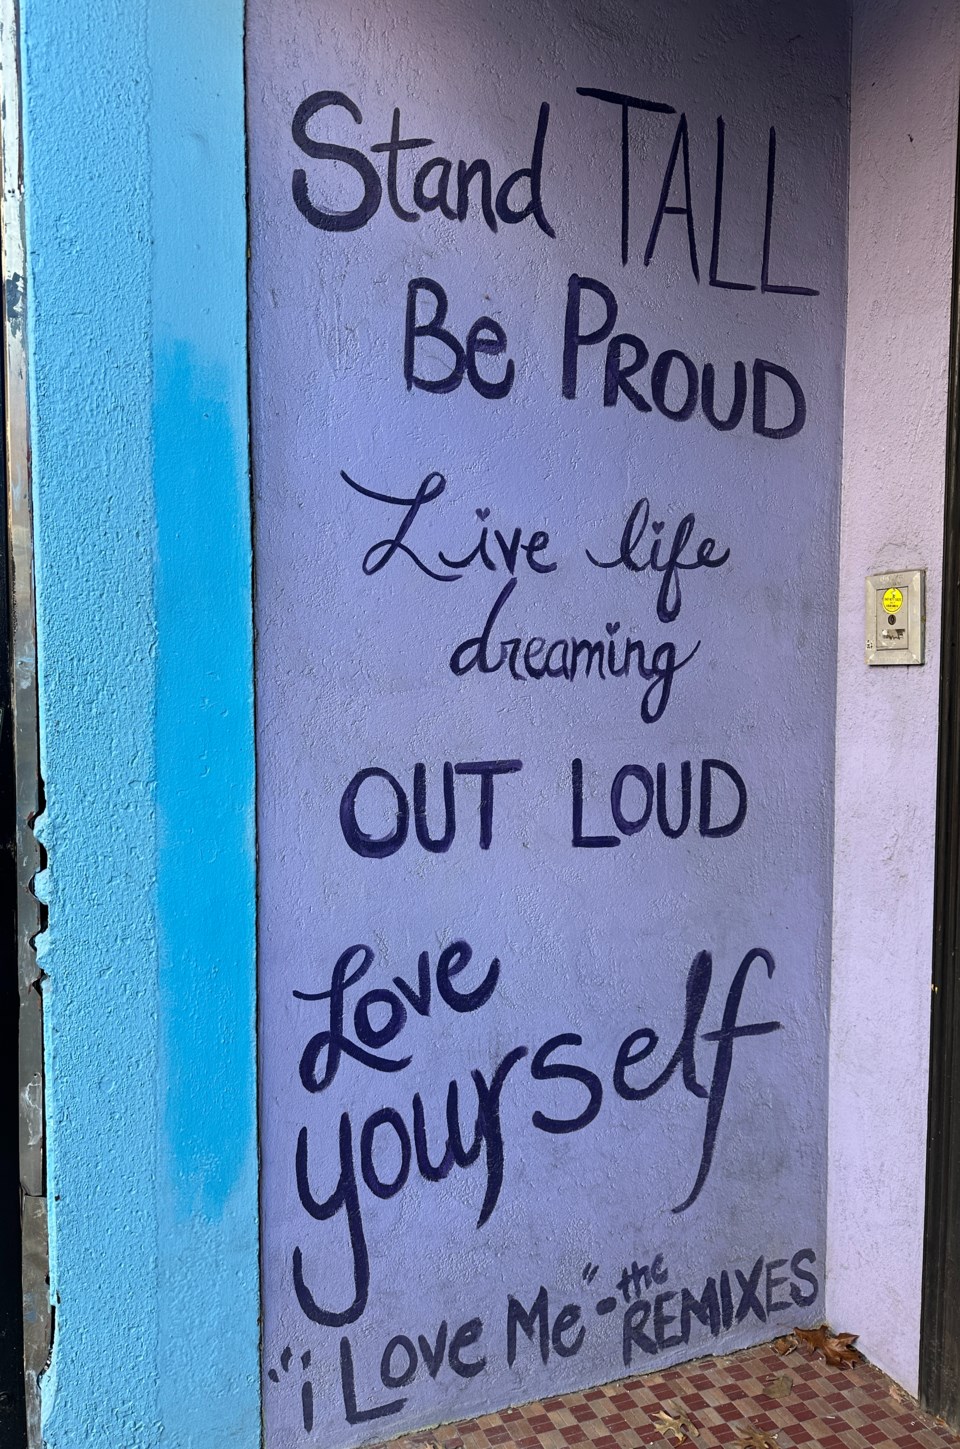 Stand TALL
Be PROUD
Live life
dreaming
OUT LOUD
Love
yourself
"i Love Me" - the
REMIXES